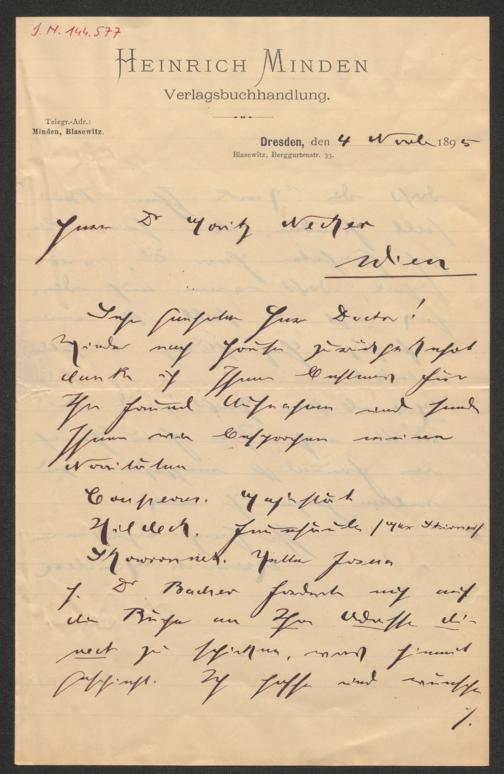 J. N. 144.577
HEINRICH MINDEN
Verlagsbuchhandlung.
Telegr.-Adr.:
Minden, Blasewitz.
Dresden, den 4 Novbr 1895
Blasewitz, Berggartenstr. 33.
Herrn Dr Moritz Necker
Wien
Sehr geehrter Herr Doctor!
Wieder nach Hause zurückgekehrt
danke ich Ihnen bestens für
Ihre freundl Aufnahme und sende
Ihnen wie besprochen meine
Novitäten
Conspern. Majestät
Hildeck.
Skowronnek.
H. Dr Bacher forderte mich auf
die Bücher an Ihre Adresse di-
rect zu schicken, was hiermit
geschieht. Ich hoffe und wünsche
/.